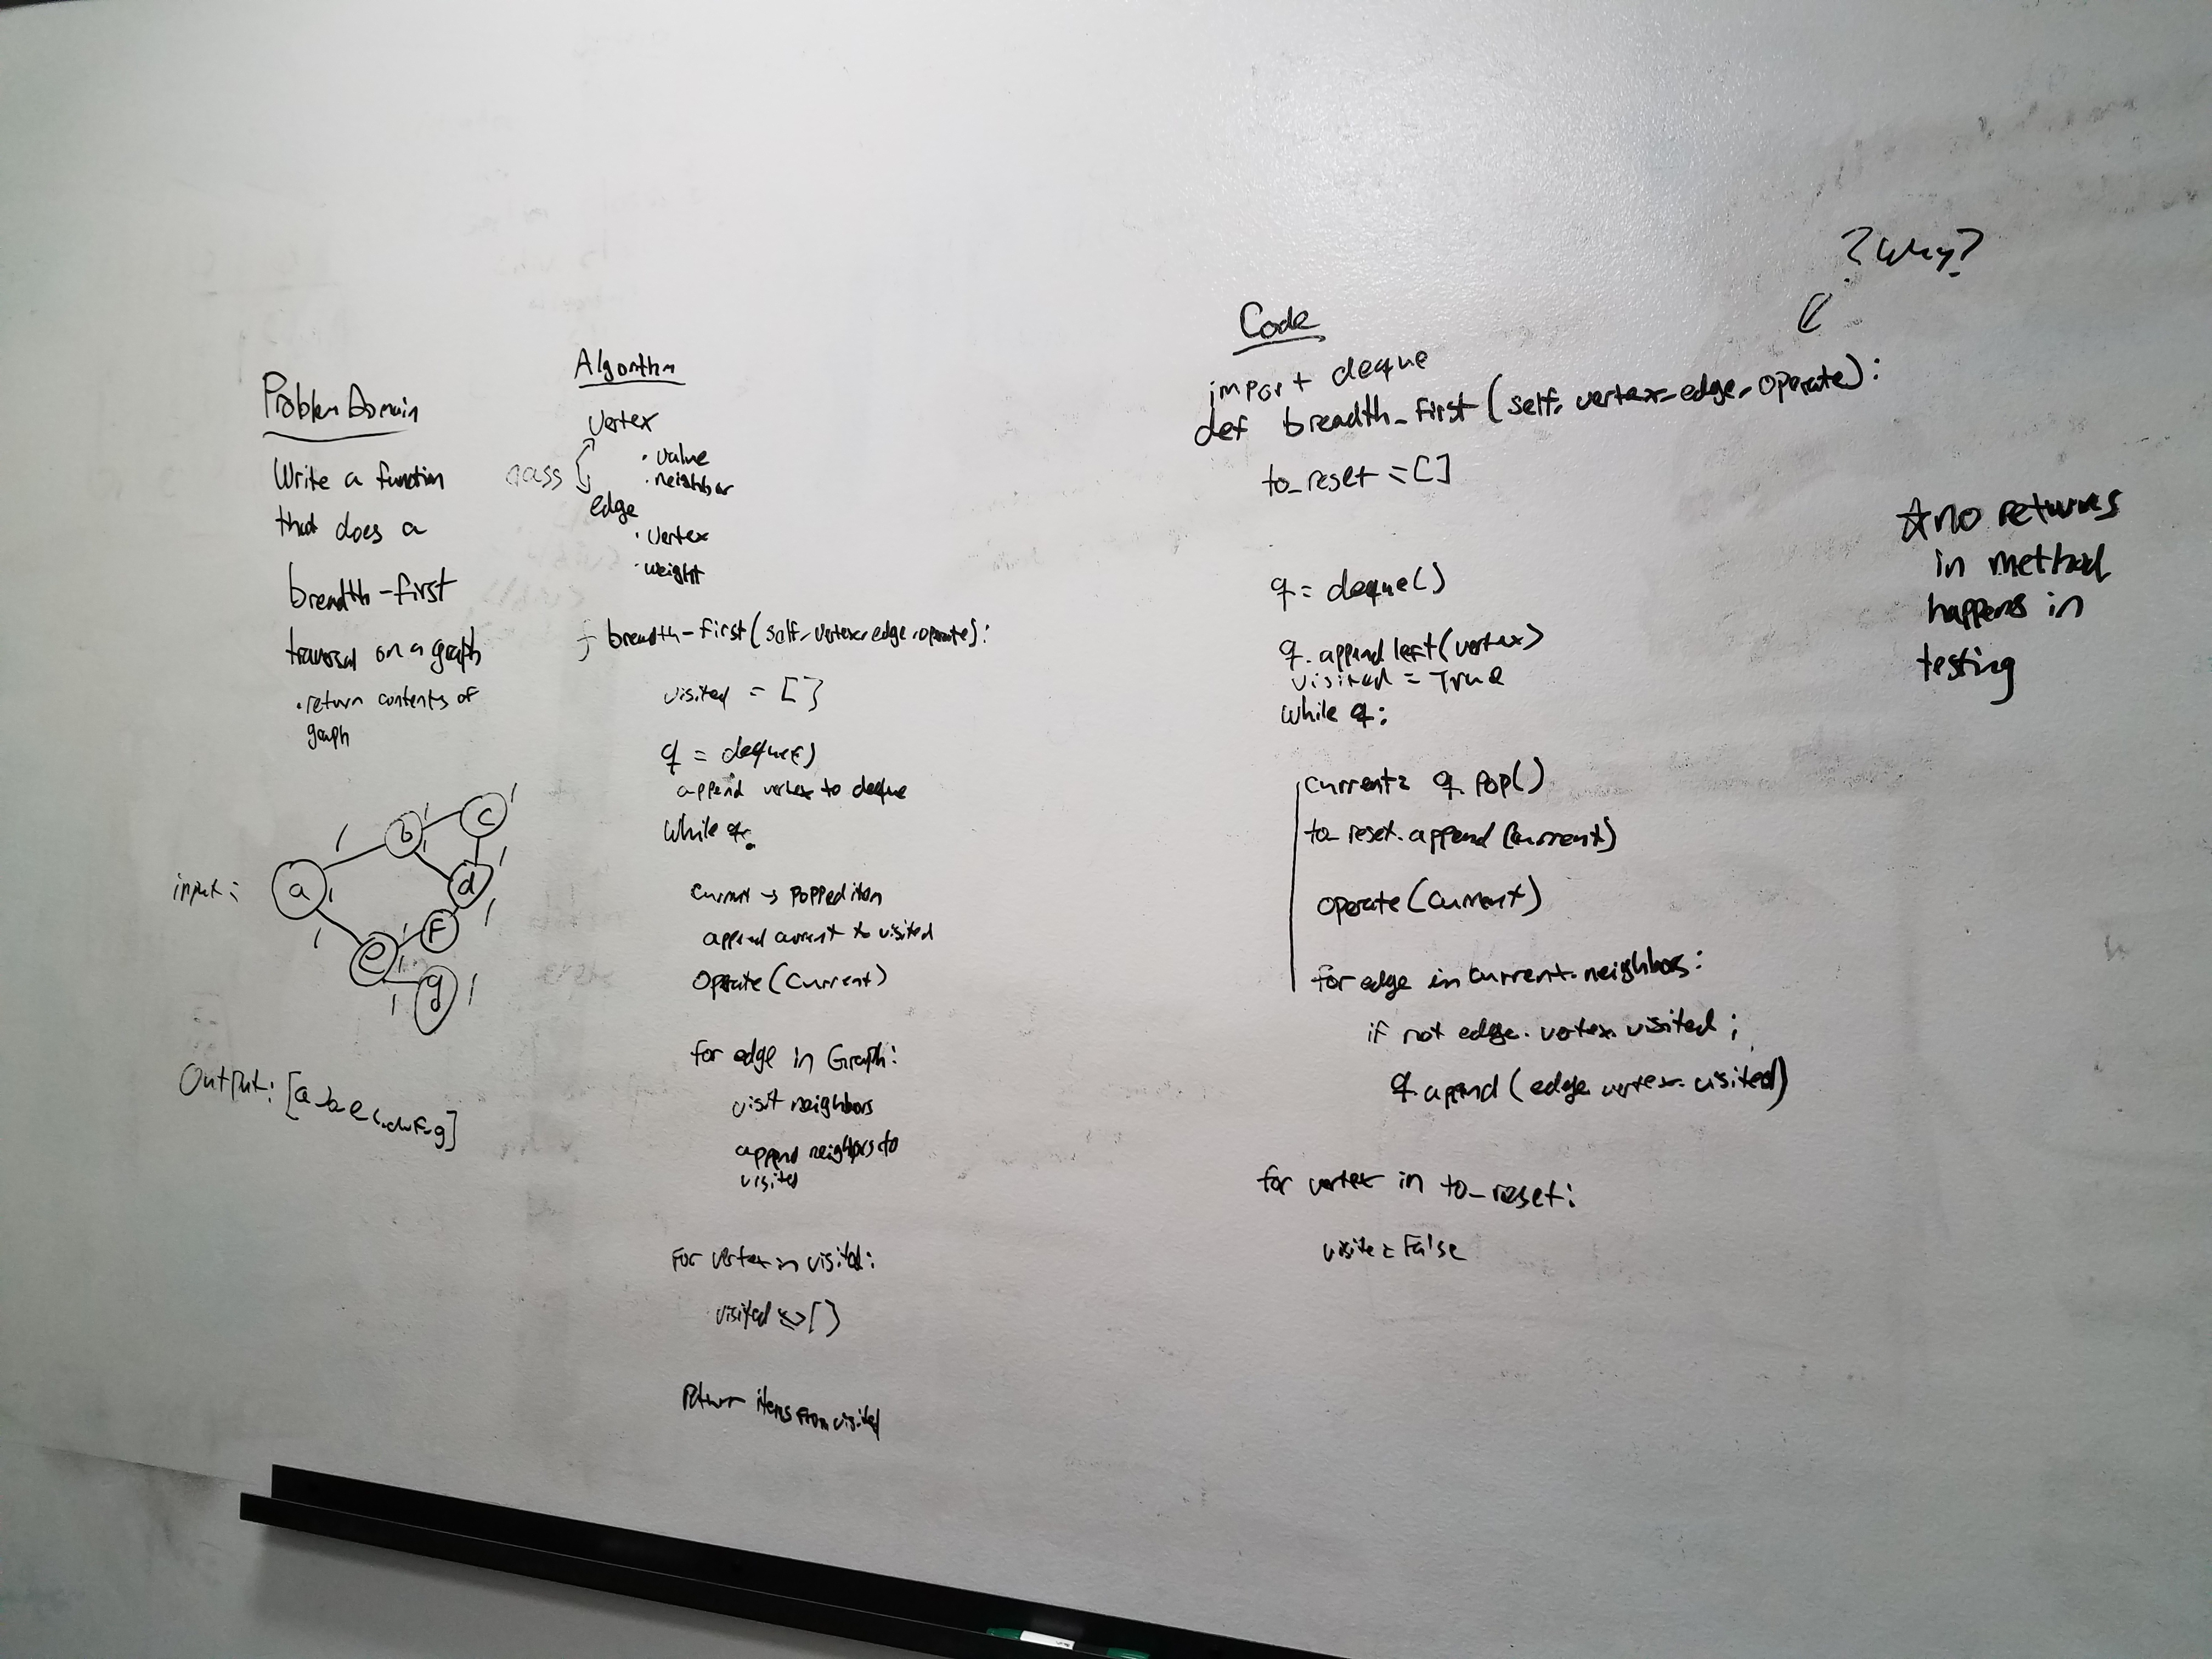 Problem Domain
Write a function
that does a
breadth-first
traversal on a graph
• return contents of
graph
input:
a
b
c
d
e
F
g
Output: [a,b,e,c,d,F,g]
Algorithm
Vertex
class
• value
• neighbor
edge
• vertex
• weight
breadth-first(self, vertex, edge, operate):
visited = []
q = deque()
append vertex to deque
while q:
current → popped item
append current to visited
operate(current)
for edge in Graph:
visit neighbors
append neighbors to
visited
For vertex in visited:
visited => []
Return items from visited
?Why?
Code
import deque
def breadth_first(self, vertex, edge, operate):
to_reset = []
q = deque()
q.append left(vertex)
visited = True
while q:
current = q.pop()
to_reset.append(current)
operate(current)
for edge in current.neighbors:
if not edge.vertex.visited;
q.append(edge.vertex.visited)
for vertex in to_reset:
visite = False
☆no returns
in method
happens in
testing